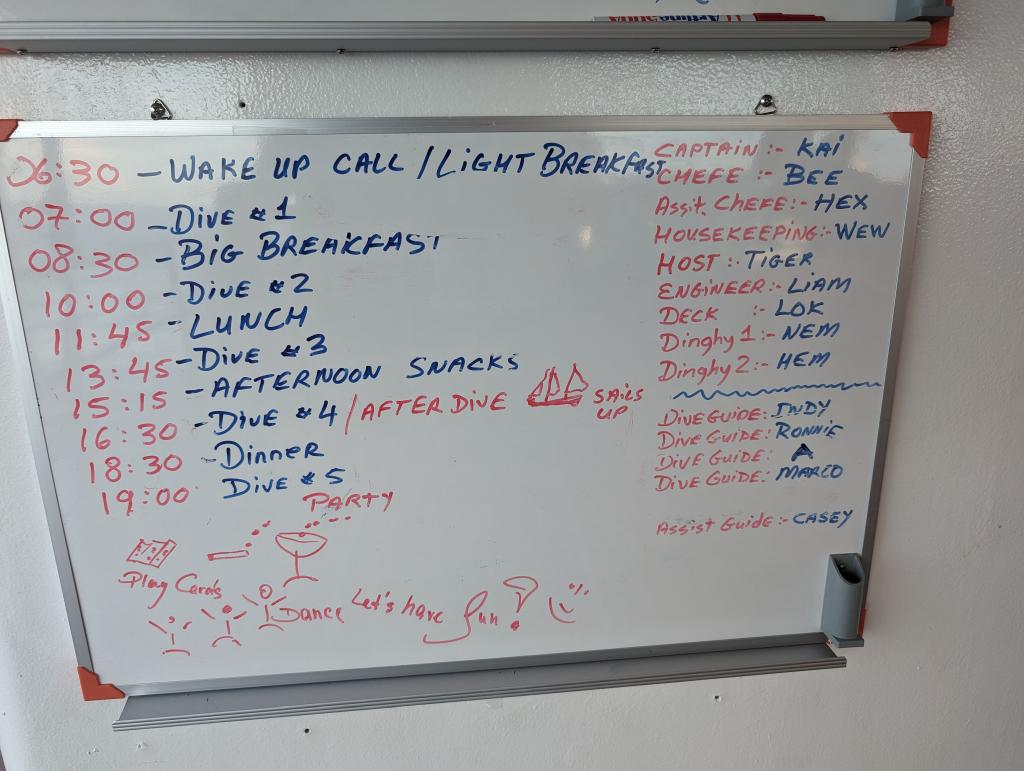 06:30 - WAKE UP CALL / LIGHT BREAKFAST
07:00 - DIVE #1
08:30 - BIG BREAKFAST
10:00 - DIVE #2
11:45 - LUNCH
13:45 - DIVE #3
15:15 - AFTERNOON SNACKS
16:30 - DIVE #4 / AFTER DIVE SAILS UP
18:30 - Dinner
19:00 DIVE #5
PARTY
Play Cards
Dance Let's have fun!
CAPTAIN :- KAI
CHEFE :- BEE
Assit. CHEFE :- HEX
HOUSEKEEPING :- WEW
HOST :- TIGER
ENGINEER :- LIAM
DECK :- LOK
Dinghy 1 :- NEM
Dinghy 2 :- HEM
DIVE GUIDE: INDY
DIVE GUIDE: RONNIE
DIVE GUIDE: A
DIVE GUIDE: MARCO
Assist GUIDE :- CASEY